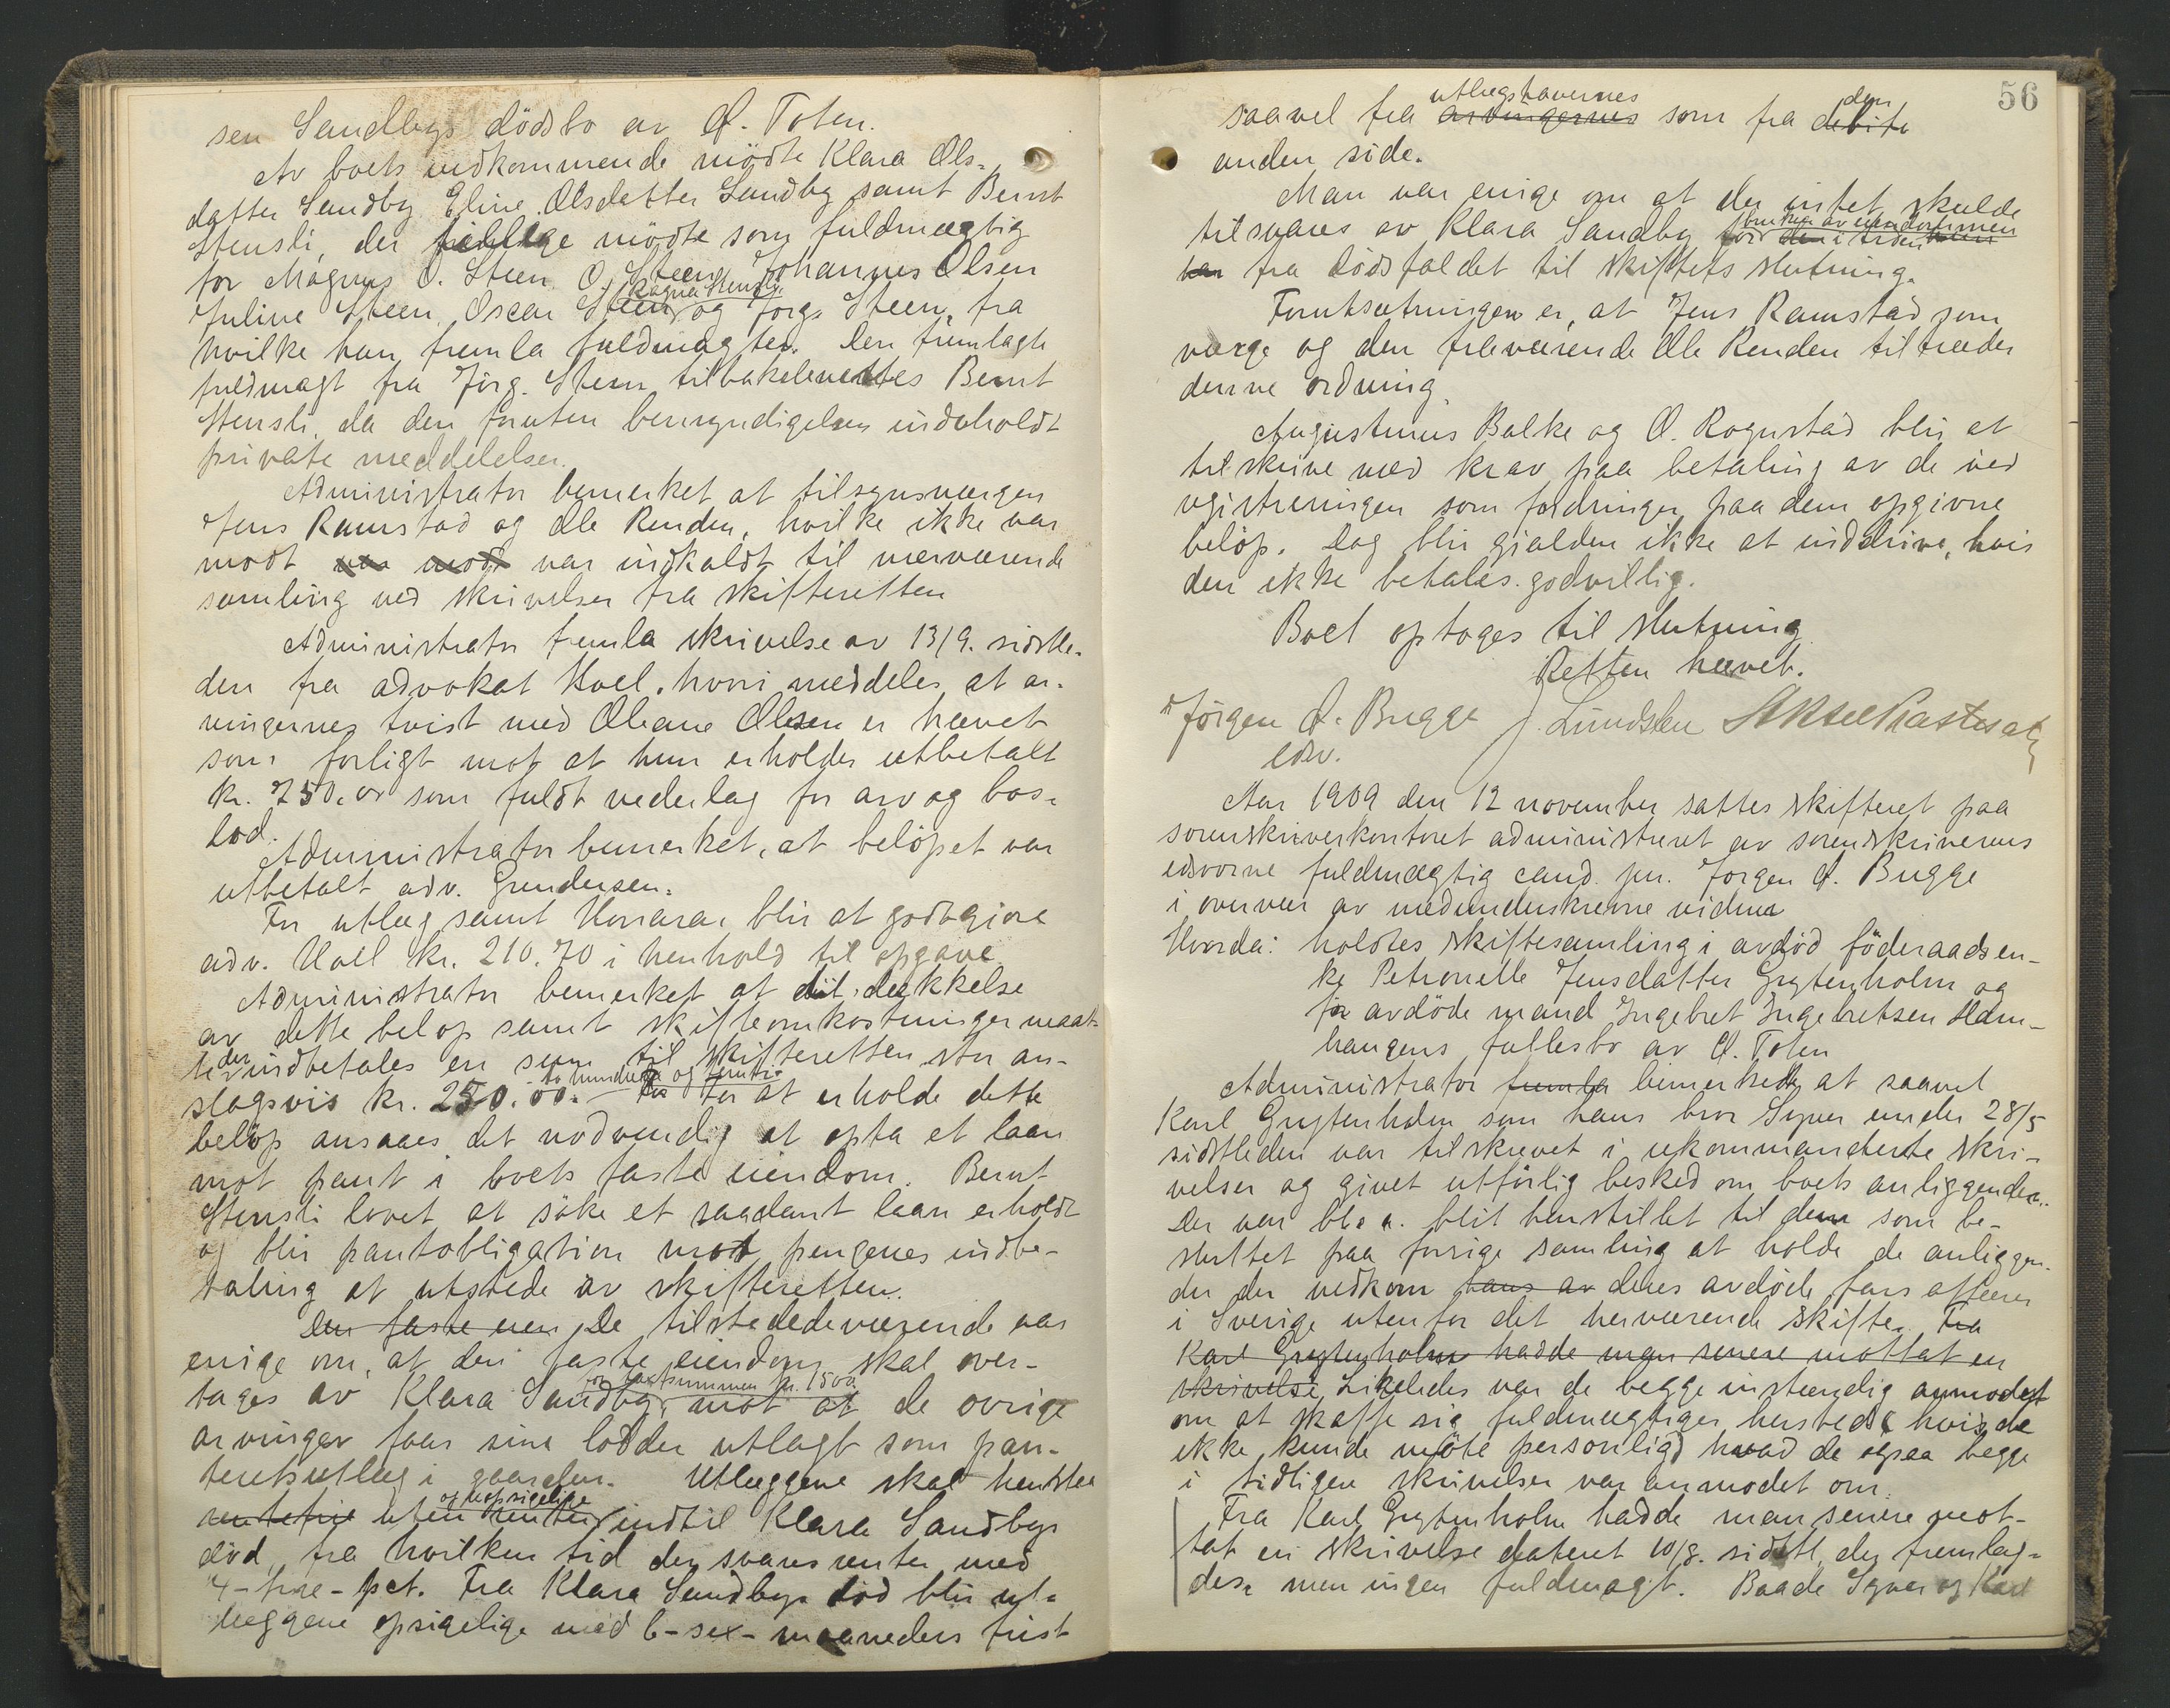 sen Sandbys dödsbo av Ö. Toten.
Av boets vedkommende mödte Klara Ols-
datter Sandby Eline Olsdatter Sandby samt Bernt
Stensli, der tillige mödte som fuldmægtig
for Magnus O. Steen O. Steen, Johannes Olsen
Ragna Stensli
Juline Steen, Oscar Steen og Jörg. Steen, fra
hvilke han fremla fuldmagter. Den fremlagte
fuldmagt fra Jörg. Steen tilbakelevertes Bernt
Stensli, da den foruten bemyndigelsen indeholdt
private meddelelser.
Administrator bemerket at tilsynsvergen
Jens Ramstad og Ole Renden, hvilke ikke var
mödt var mödt var indkaldt til nærværende
samling ved skrivelser fra skifteretten
Administrator fremla skrivelse av 13/9. sidstle-
den fra advokat Hoel, hvori meddeles at ar-
vingernes tvist med Oleane Olsen er hævet
som forligt mot at hun erholder utbetalt
kr. 750.00 som fuldt vederlag for arv og bos-
lod.
Administrator bemerket, at belöpet var
utbetalt adv. Gundersen.
For utlæg samt Honorar blir at godtgjöre
adv. Hoel kr. 210.70 i henhold til opgave.
Administrator bemerket at dit dækkelse
av dette belöp samt skifteomkostninger maat-
der
te indbetales en sum til skifteretten stor an-
to hundrede og femti
slagsvis kr. 250.00. For at erholde dette
belöp ansaaes det nödvendig at opta et laan
mot pant i boets faste eiendom. Bernt
Stensli lovet at söke et saadant laan erholdt
og blir pantobligation mot pengenes indbe-
taling at utstede av skifteretten.
Den faste eien De tilstededeværende var
enige om, at den faste eiendom skal over-
for taxtsummen kr. 1500
tages av Klara Sandby, mot at de övrige
arvinger faar sine lodder utlagt som pan-
teretsutlæg i gaarden. Utlæggene skal henstaa
og uopsigelige
rentefrie uten renter indtil Klara Sandbys
död, fra hvilken tid der svares renter med
4-fire-pct. Fra Klara Sandbys död blir ut-
læggene opsigelige med 6-sex-maaneders frist
56
utlægshavernes den
saavel fra arvingernes som fra debito
anden side.
Man var enige om at der intet skulde
bruken av eiendommen
tilsvares av Klara Sandby for den i tiden
fra dödsfaldet til skiftets slutning.
Forutsætningen er, at Jens Ramstad som
verge og den fraværende Ole Renden tiltræder
denne ordning.
Augustinus Balke og O. Rognstad blir at
tilskrive med krav paa betaling av de ved
registreringen som fordringer paa dem opgivne
belöp. Dog blir gjælden ikke at inddrive, hvis
den ikke betales godvillig.
Boet optages til slutning.
Retten hævet.
Jörgen Ø. Bugge J. Lundsten Aksel Prastesat
edsv.
Aar 1909 den 12 november sattes skifteret paa
sorenskriverkontoret administreret av sorenskriverens
edsvorne fuldmægtig cand. jur. Jörgen Ø. Bugge
i overvær av medunderskrevne vidner
Hvorda: holdtes skiftesamling i avdöd föderaadsen-
ke Petronelle Jensdatter Grytenholm og
avdöde mand Ingebret Ingebretsen Ham-
haugens fællesbo av Ö. Toten
Administrator fremla bemerket, at saavel
Karl Grytenholm som hans bror Syver under 28/5
sidstleden var tilskrevet i rekommanderte skri-
velser og givet utförlig besked om boets anliggender.
Der var bl.a. blit henstillet til dem som be-
sluttet paa forrige samling at holde de anliggen-
der der vedkom hans av deres avdöde fars affærer
i Sverige utenfor det herværende skifte. Fra
Karl Grytenholm hadde man senere mottat en
skrivelse Likeledes var de begge instændig anmodet
om at skaffe sig fuldmægtiger hersteds, hvis de
ikke kunde möte personlig, hvad de ogsaa begge
i tidligere skrivelser var anmodet om.
Fra Karl Grytenholm hadde man senere mot-
tat en skrivelse dateret 10/8. sidstl, der fremlag-
des, men ingen fuldmagt. Baade Syver og Karl